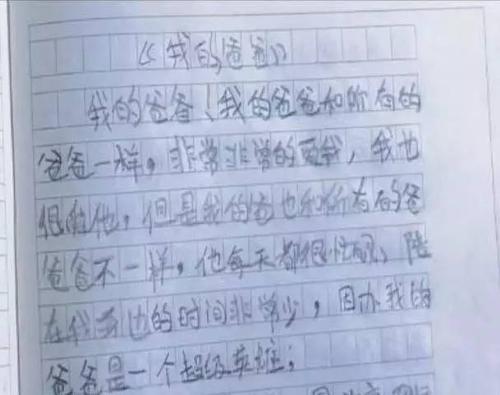 《我的爸爸》
我的爸爸！我的爸爸和所有的
爸爸一样，非常非常的爱我，我也
很爱他，但是我的爸也和所有的爸
爸爸不一样，他每天都很忙碌，陪
在我身边的时间非常少，因为我的
爸爸是一个超级英雄；